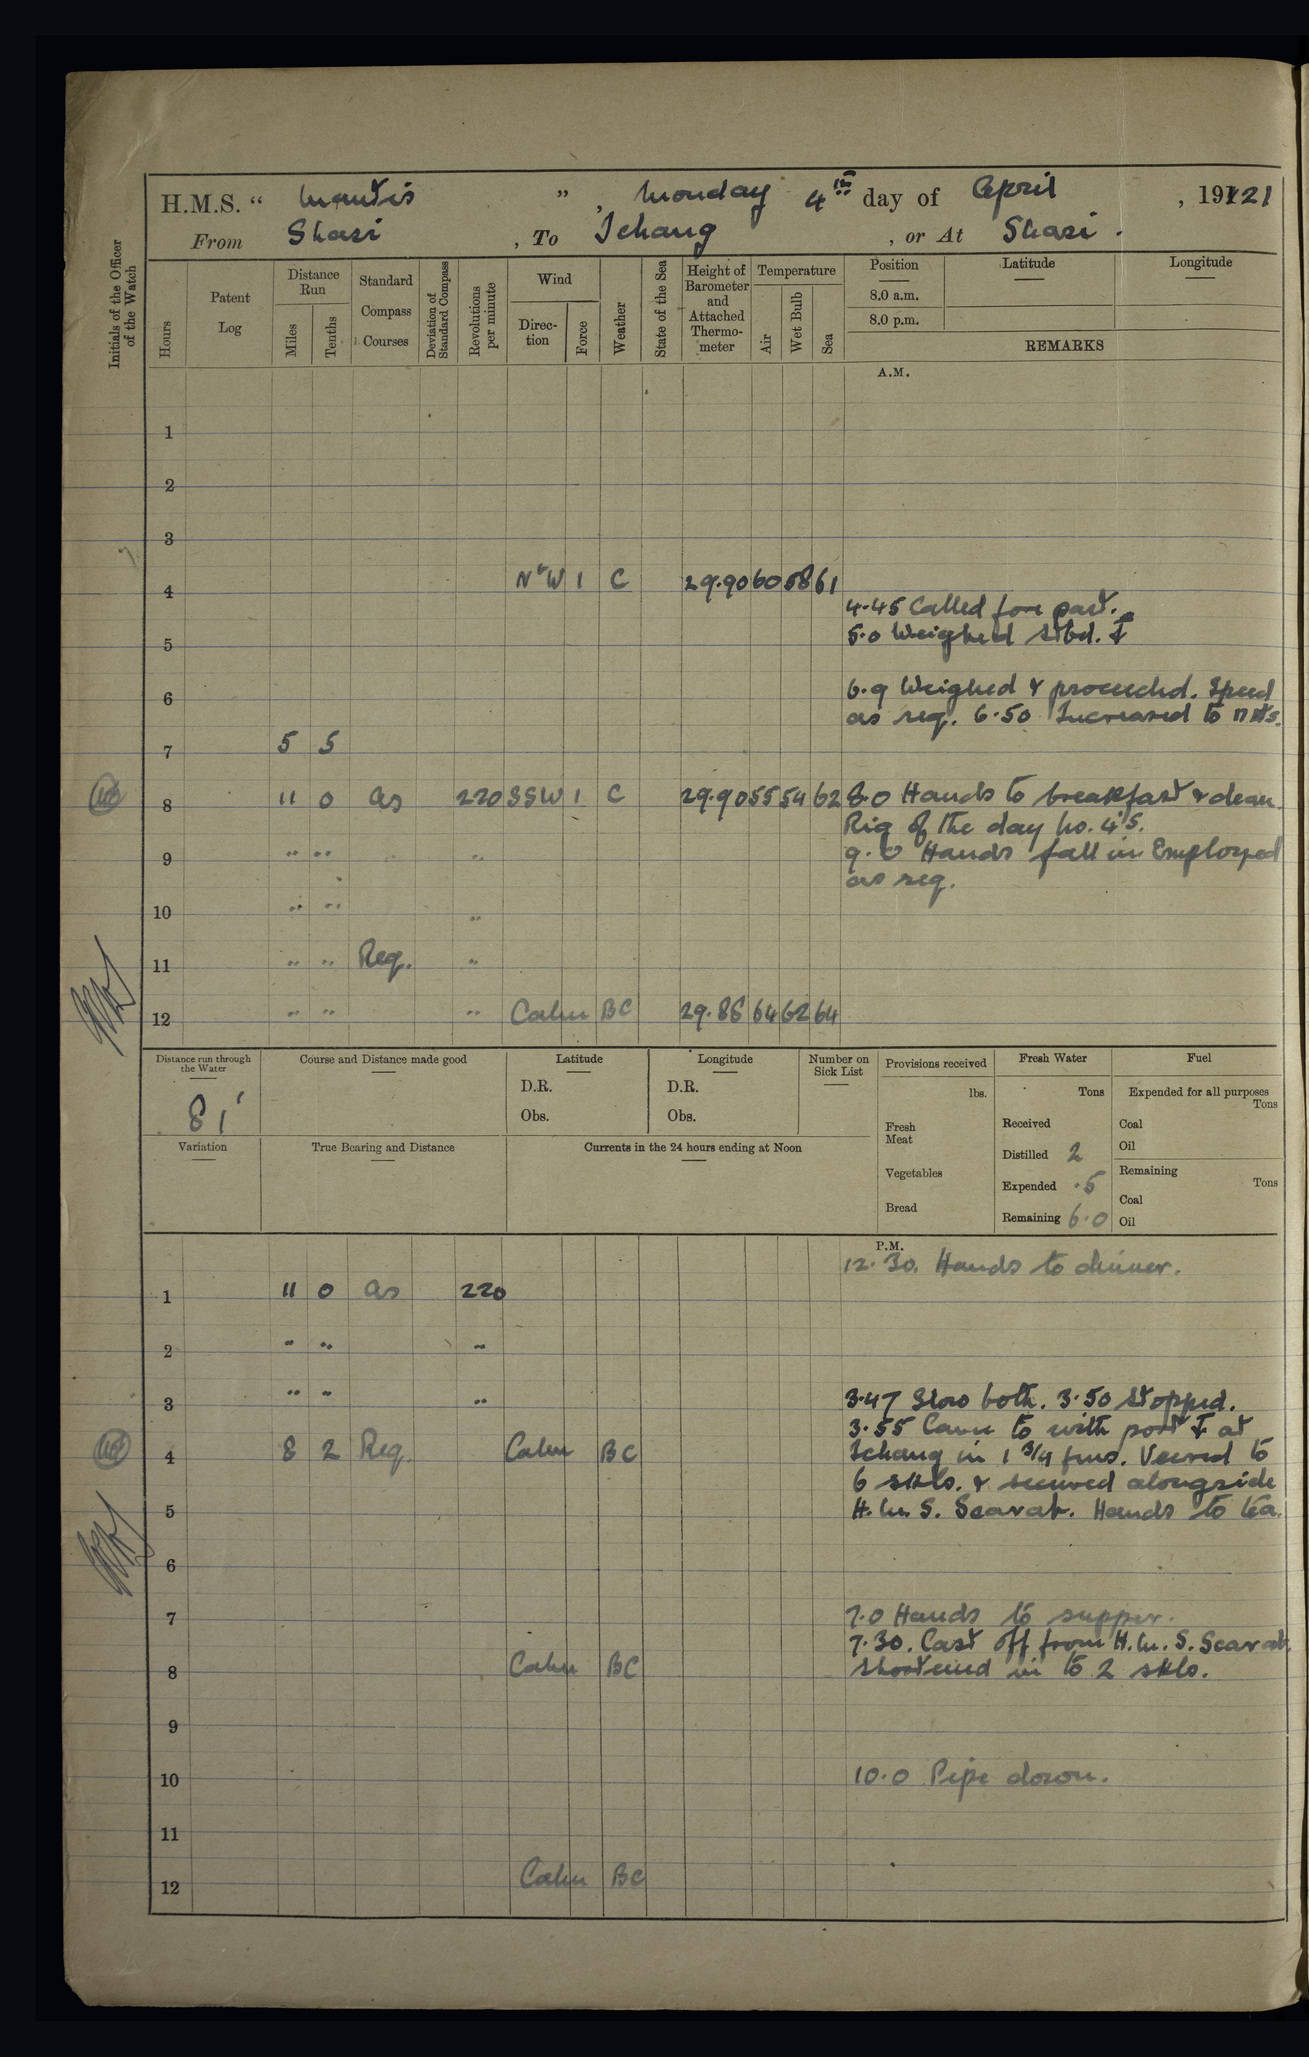 H.M.S. “ Mantis ” , Monday 4th day of April , 19121
From Shasi , To Ichang , or At Shasi .
Initials of the Officer of the Watch
Hours
Patent Log
Distance Run
Miles
Tenths
Standard Compass Courses
Deviation of Standard Compass
Revolutions per minute
Wind
Direc- tion
Force
Weather
State of the Sea
Height of Barometer and Attached Thermo- meter
Temperature
Air
Wet Bulb
Sea
Position
Latitude
Longitude
8.0 a.m.
8.0 p.m.
REMARKS
A.M.
1
2
3
4 NbW 1 C 29.90 60 58 61
4.45 Called fore part.
5 5.0 Weighed stbd. ⚓
6 6.9 Weighed & proceeded. Speed
as req. 6.50 Increased to 11 kts.
7 5 5
8 11 0 as 220 SSW 1 C 29.90 55 54 62 8.0 Hands to breakfast & clean.
Rig of the day No. 4's.
9 " " " 9.0 Hands fall in Employed
as req.
10 " " "
11 " " Req. "
12 " " " Calm BC 29.88 64 62 64
Distance run through the Water
81'
Course and Distance made good
Latitude
D.R.
Obs.
Longitude
D.R.
Obs.
Number on Sick List
Provisions received
lbs.
Fresh Meat
Vegetables
Bread
Fresh Water
Tons
Received
Distilled 2
Expended .5
Remaining 6.0
Fuel
Expended for all purposes
Tons
Coal
Oil
Remaining
Tons
Coal
Oil
Variation
True Bearing and Distance
Currents in the 24 hours ending at Noon
P.M.
12.30. Hands to dinner.
1 11 0 as 220
2 " " "
3 " " " 3.47 Slow both. 3.50 Stopped.
3.55 Came to with port ⚓ at
4 8 2 Req Calm BC Ichang in 1 3/4 fms. Veered to
6 shkls. & secured alongside
5 H.M.S. Scarab. Hands to tea.
6
7 7.0 Hands to supper.
7.30. Cast off from H.M.S. Scarab.
8 Calm BC Shortened in to 2 shkls.
9
10 10.0 Pipe down.
11
12 Calm BC